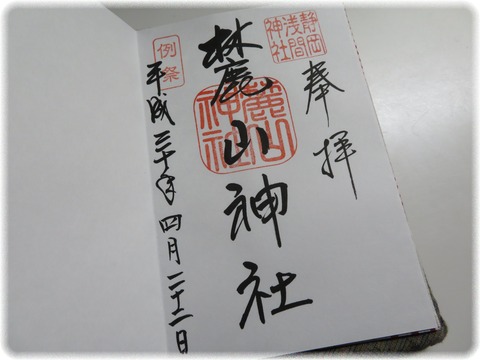 奉拝
静岡
浅間
神社
麓山神社
麓山
神社
例祭
平成三十年四月二十二日